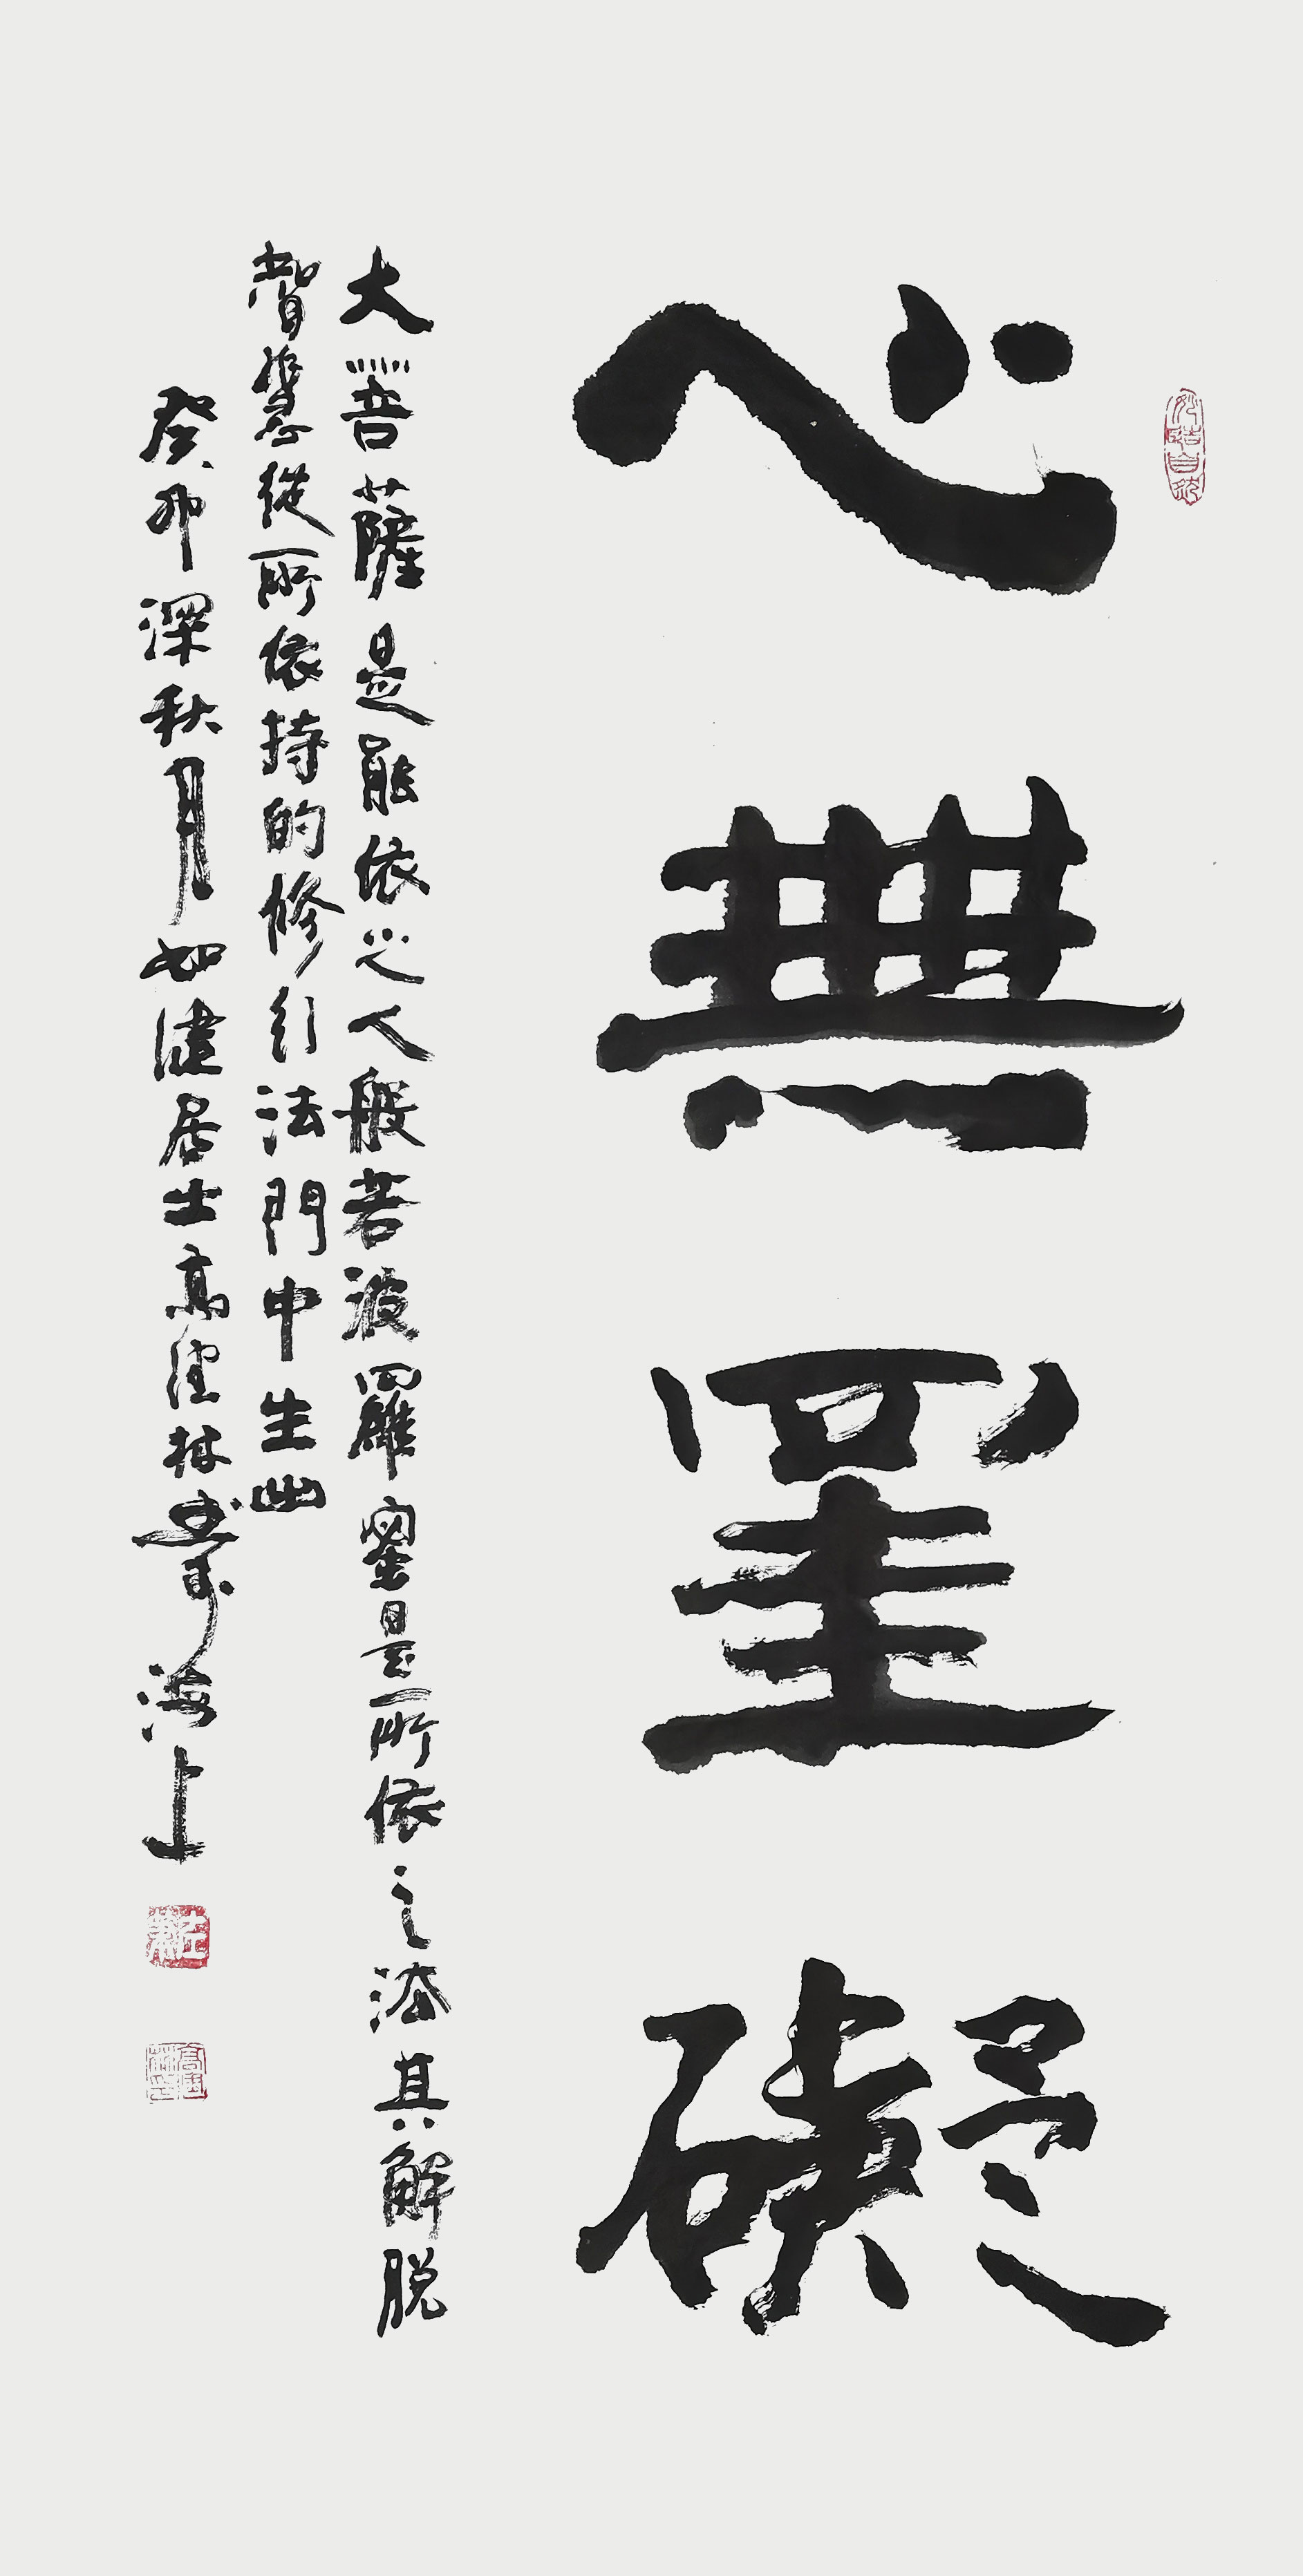 心無罣礙
大菩薩是能依之人般若波羅蜜是所依之法其解脫
智慧從所依持的修引法門中生出
癸卯深秋月如 居士高 林書於海上